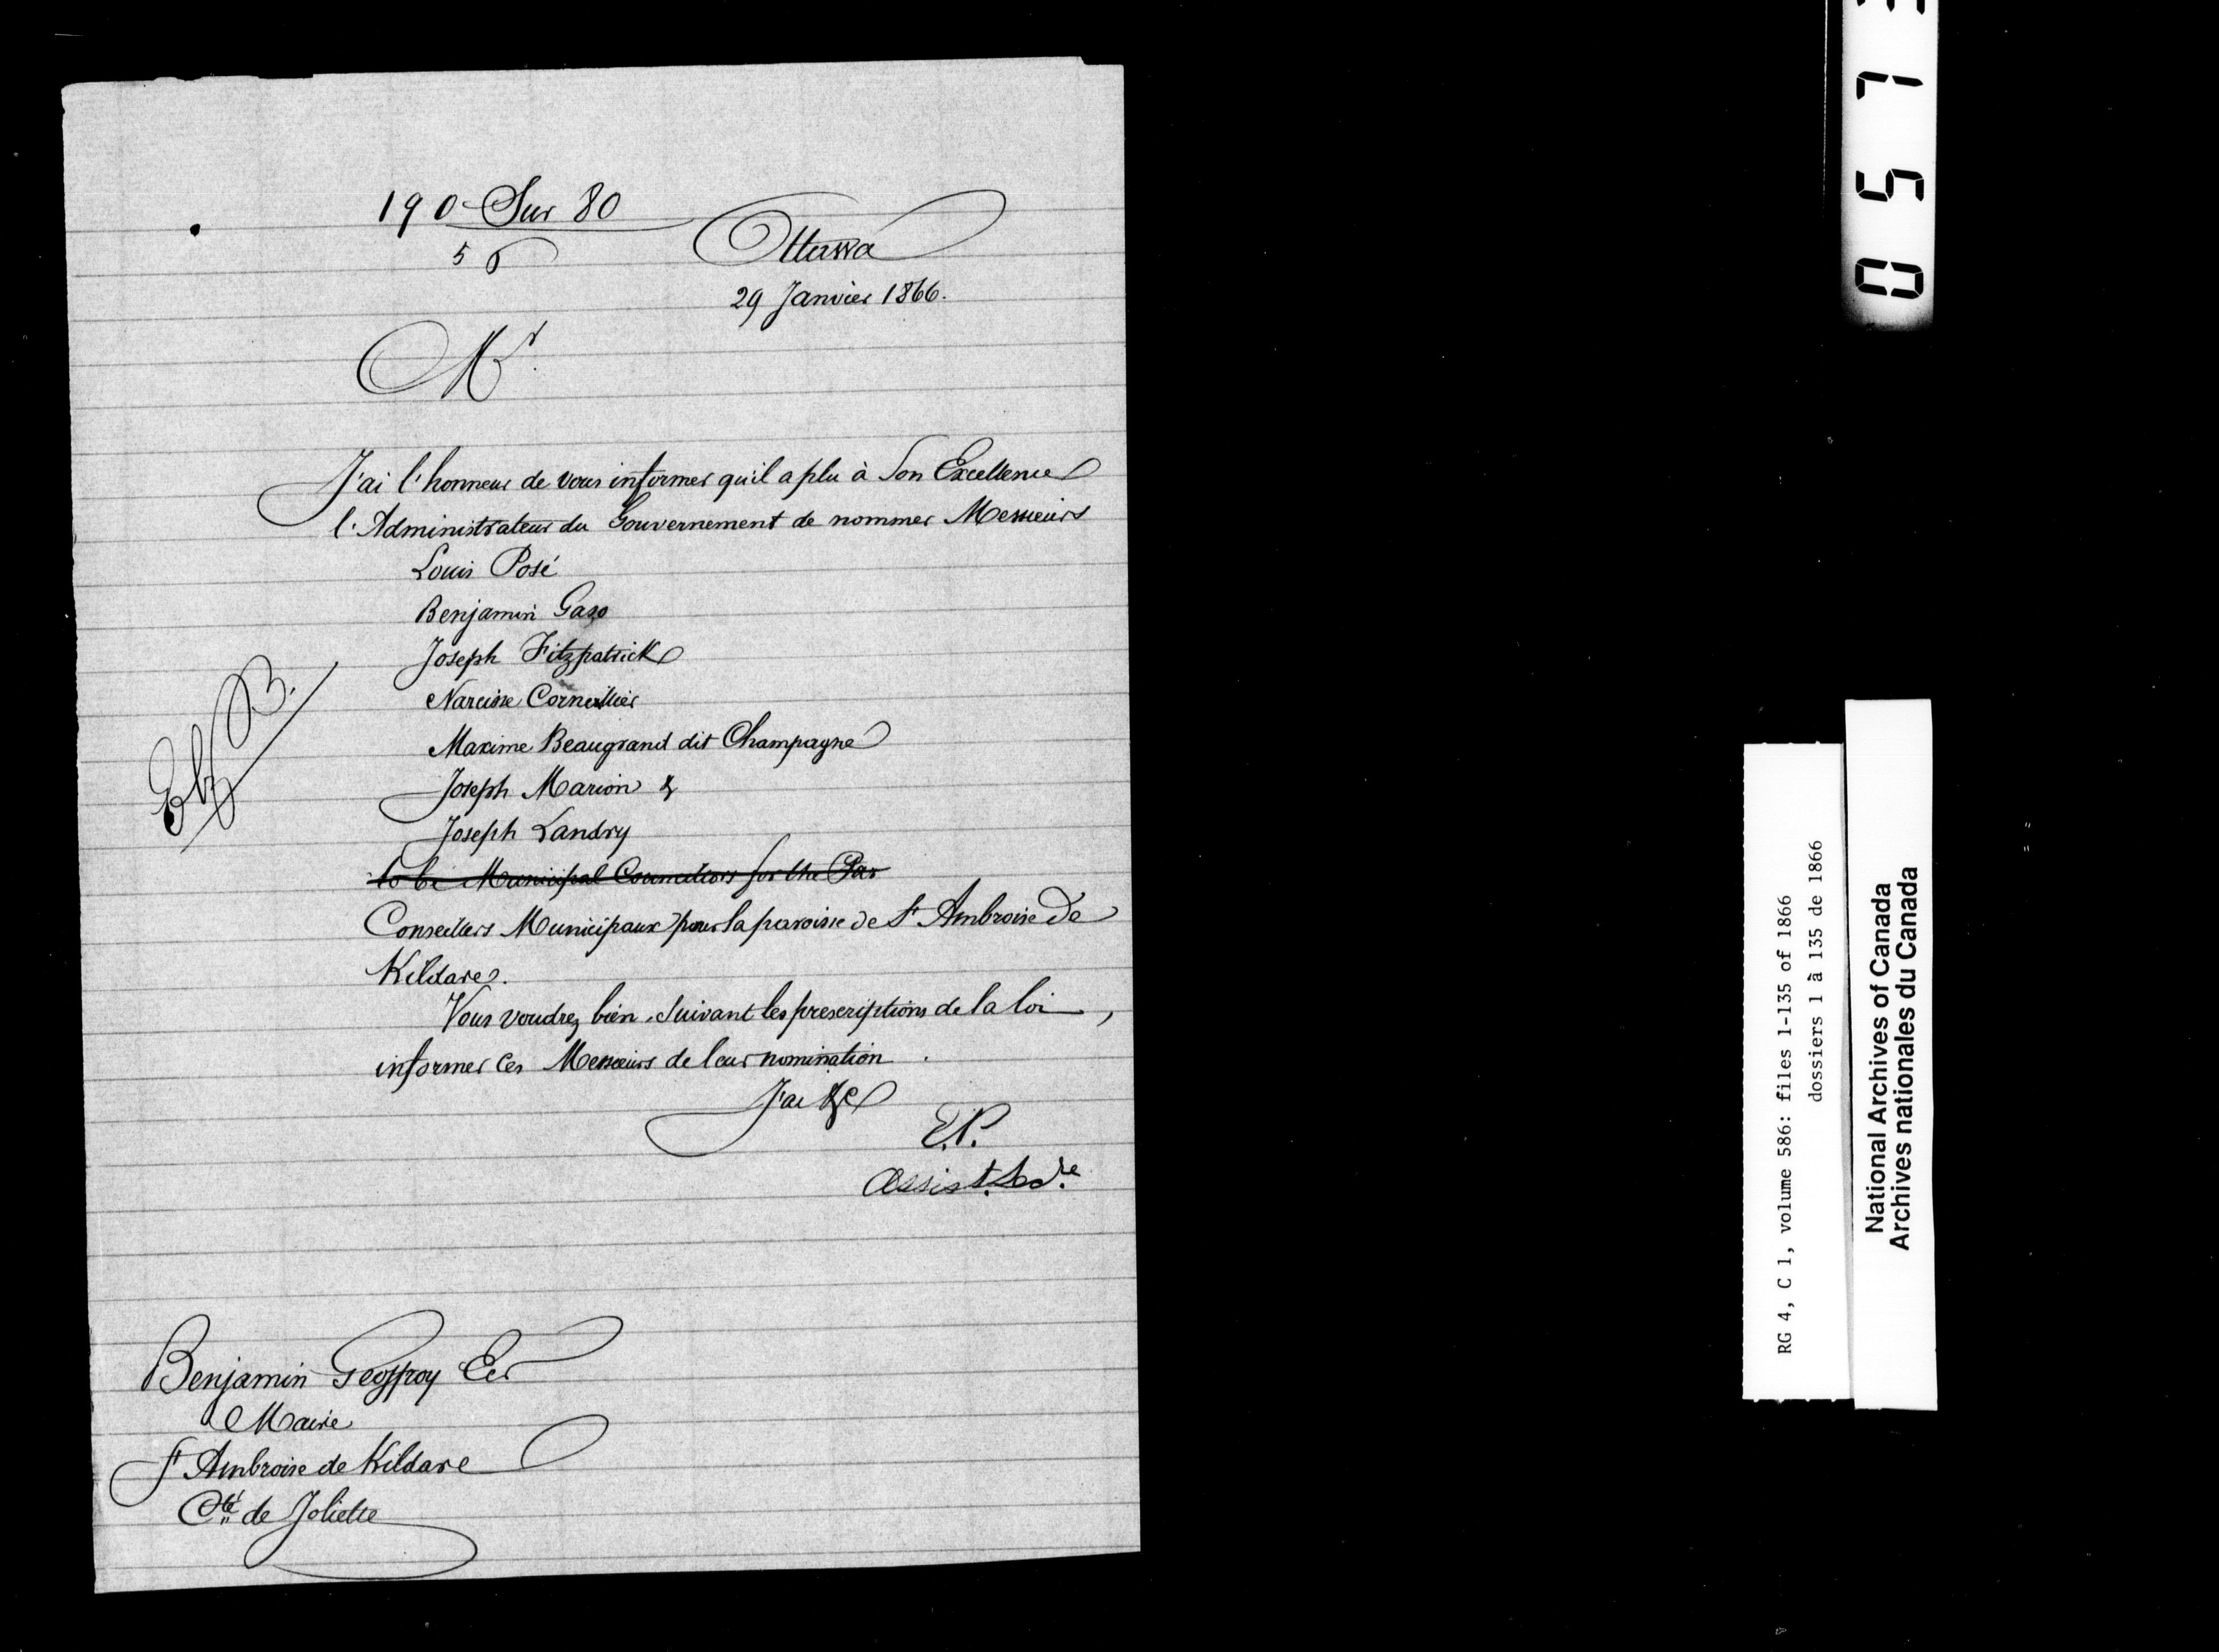 190 Sur 80
56
Ottawa
29 Janvier 1866.
Mr
J'ai l'honneur de vous informer qu'il a plu à Son Excellence
l'Administrateur du Gouvernement de nommer Messieurs
Louis Posé
Benjamin Gazo
Joseph Fitzpatrick
Narcisse Corneillier
Maxime Beaugrand dit Champagne
Joseph Marion &
Joseph Landry
to be Municipal Councillors for the Par
Conseillers Municipaux pour la paroisse de St Ambroise de
Kildare.
Vous voudrez bien, suivant les prescriptions de la loi,
informer ces Messieurs de leur nomination.
J'ai &c
E.P.
Assist. Secre.
Benjamin Geoffroy Ecr
Maire
St Ambroise de Kildare
Cté de Joliette
RG 4, C 1, volume 586: files 1-135 of 1866
dossiers 1 à 135 de 1866
National Archives of Canada
Archives nationales du Canada